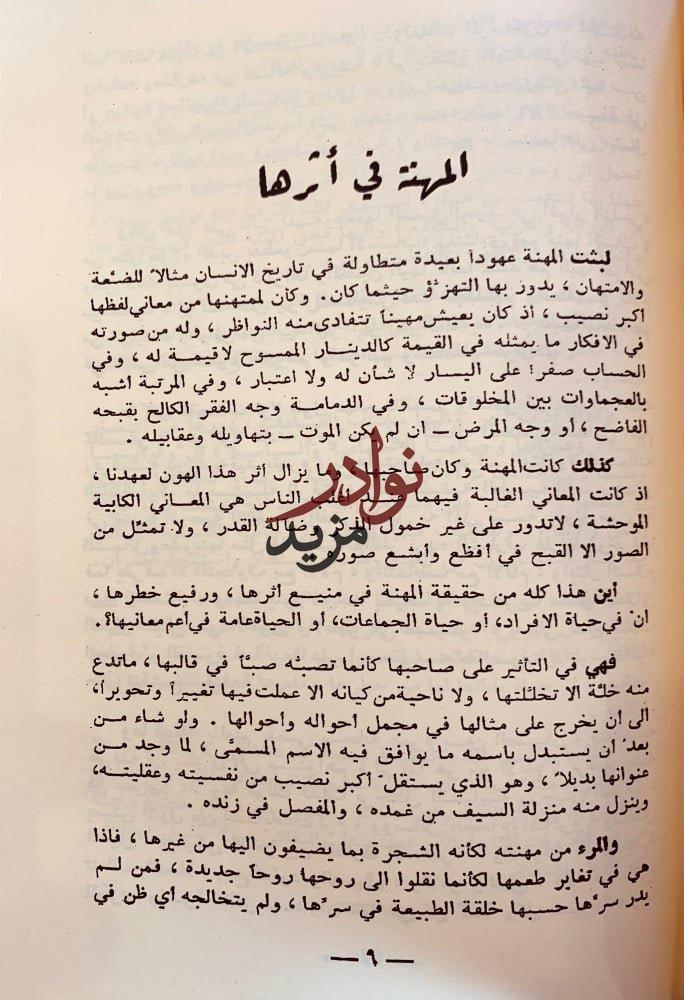 المهنة في أثرها
لبثت المهنة عهوداً بعيدة متطاولة في تاريخ الانسان مثالاً للضّعة
والامتهان ، يدور بها التهزؤ حيثما كان . وكان لممتهنها من معاني لفظها
اكبر نصيب ، اذ كان يعيش مهيناً تتفادى منه النواظر ، وله من صورته
في الافكار ما يمثله في القيمة كالدينار الممسوح لاقيمة له ، وفي
الحساب صفراً على اليسار لا شأن له ولا اعتبار ، وفي المرتبة أشبه
بالعجماوات بين المخلوقات ، وفي الدمامة وجه الفقر الكالح بقبحه
الفاضح ، أو وجه المرض – ان لم يكن الموت – بتهاويله وعقابيله .
كذلك كانت المهنة وكان صاحبها ، وما يزال أثر هذا الهون لعهدنا ،
اذ كانت المعاني الغالبة فيهما عند اغلب الناس هي المعاني الكابية
الموحشة ، لاتدور على غير خمول الذكر وضآلة القدر ، ولا تمثّل من
الصور الا القبح في أفظع وأبشع صوره
أين هذا كله من حقيقة المهنة في منيع أثرها ، ورفيع خطرها ،
ان في حياة الافراد، أو حياة الجماعات، أو الحياة عامة في أعم معانيها؟.
فهي في التأثير على صاحبها كأنما تصبّه صبّاً في قالبها ، ماتدع
منه خلّة الا تخلّلتها ، ولا ناحية من كيانه الا عملت فيها تغييراً وتحويراً،
الى أن يخرج على مثالها في مجمل أحواله وأحوالها . ولو شاء من
بعد أن يستبدل باسمه ما يوافق فيه الاسم المسمّى ، لما وجد من
عنوانها بديلاً ، وهو الذي يستقلّ أكبر نصيب من نفسيته وعقليته،
وينزل منه منزلة السيف من غمده ، والمفصل في زنده .
والمرء من مهنته لكأنه الشجرة بما يضيفون اليها من غيرها ، فاذا
هي في تغاير طعمها لكأنما نقلوا الى روحها روحاً جديدة ، فمن لم
يدر سرّها حسبها خلقة الطبيعة في سرّها ، ولم يتخالجه أي ظن في
— ٩ —
نوادر
مزيد